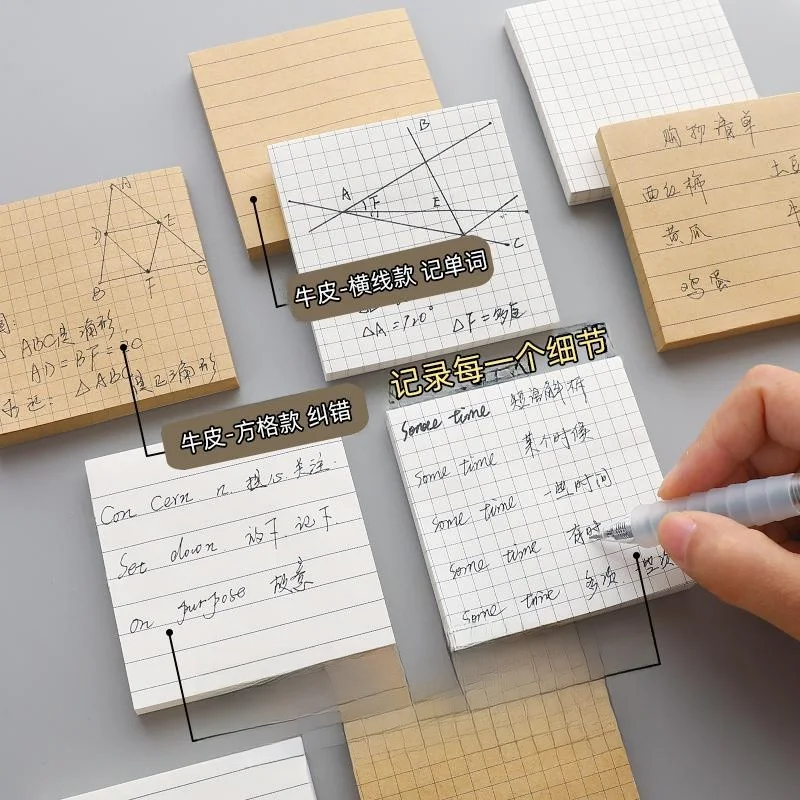 购物清单
西红柿 土豆
黄瓜 牛
鸡蛋
B
A F E
C
牛皮-横线款 记单词
△A=120° △F=
A
D E
B F C
△ABC是 角形
AD=BF=
△ABC是正三角形
记录每一个细节
牛皮-方格款 纠错
some time 短语解析
some time 某个时候
some time 一些时间
some time 有时
some time 多次
Con cern n. 担心.关注.
Set down. 放下.记下.
on purpose 故意